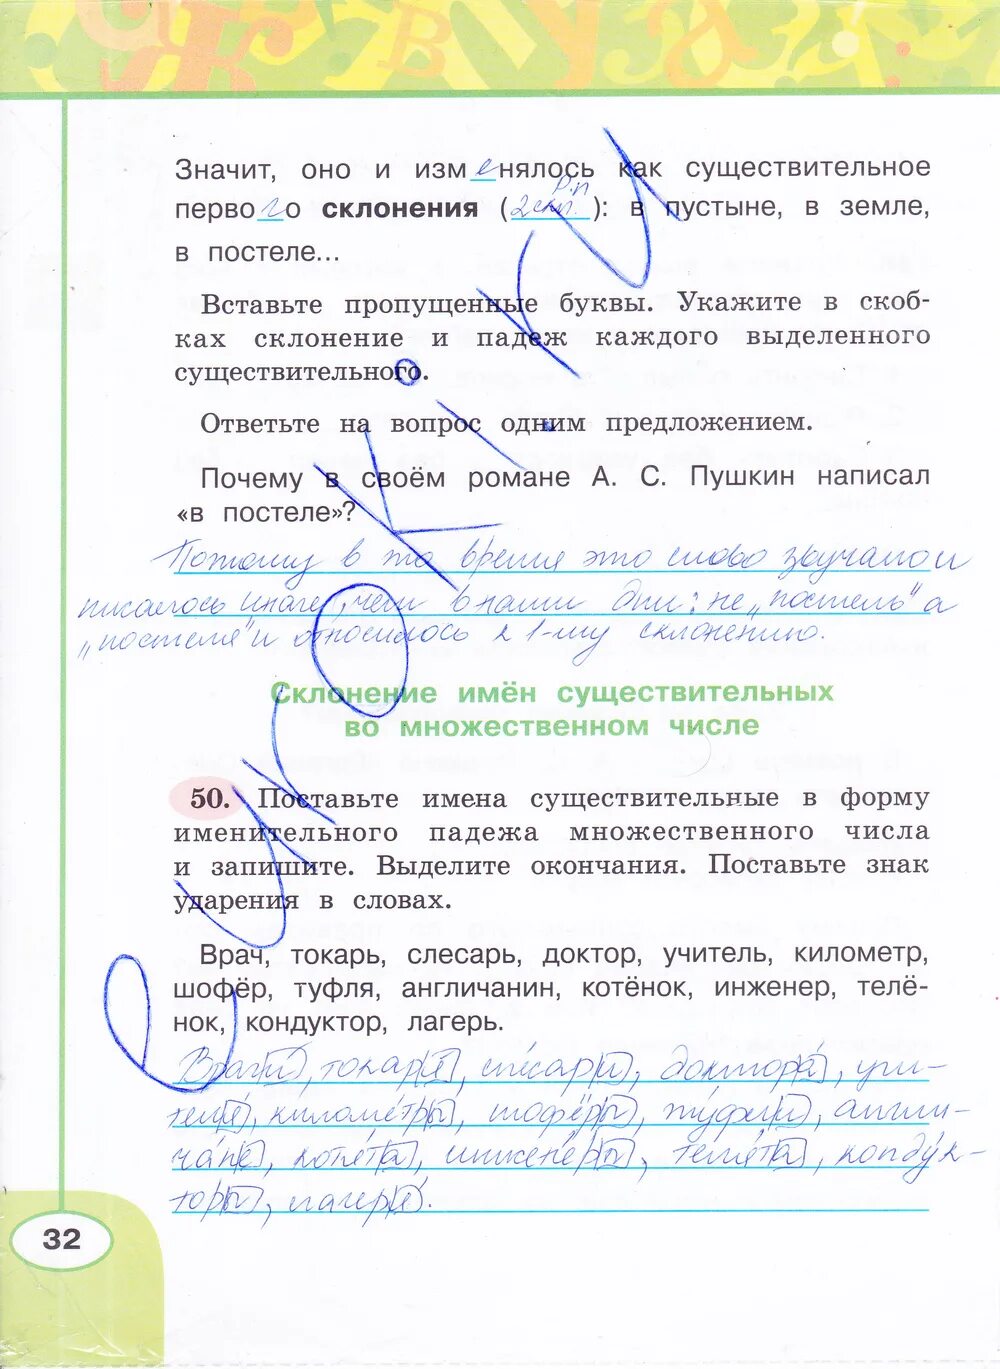 Значит, оно и изменялось как существительное
первого склонения (2скл. Р.п): в пустыне, в земле,
в постеле...
Вставьте пропущенные буквы. Укажите в скоб-
ках склонение и падеж каждого выделенного
существительного.
Ответьте на вопрос одним предложением.
Почему в своём романе А. С. Пушкин написал
«в постеле»?
Потому в то время это слово звучало и
писалось иначе, чем в наши дни: не „постель" а
„постеля" и относилось к 1-му склонению.
Склонение имён существительных
во множественном числе
50. Поставьте имена существительные в форму
именительного падежа множественного числа
и запишите. Выделите окончания. Поставьте знак
ударения в словах.
Врач, токарь, слесарь, доктор, учитель, километр,
шофёр, туфля, англичанин, котёнок, инженер, телё-
нок, кондуктор, лагерь.
Врачи, токари, слесари, доктора́, учи-
теля́, киломе́тры, шофёры, ту́фли, англи-
ча́не, котя́та, инжене́ры, теля́та, конду́к-
торы, лагеря́.
32